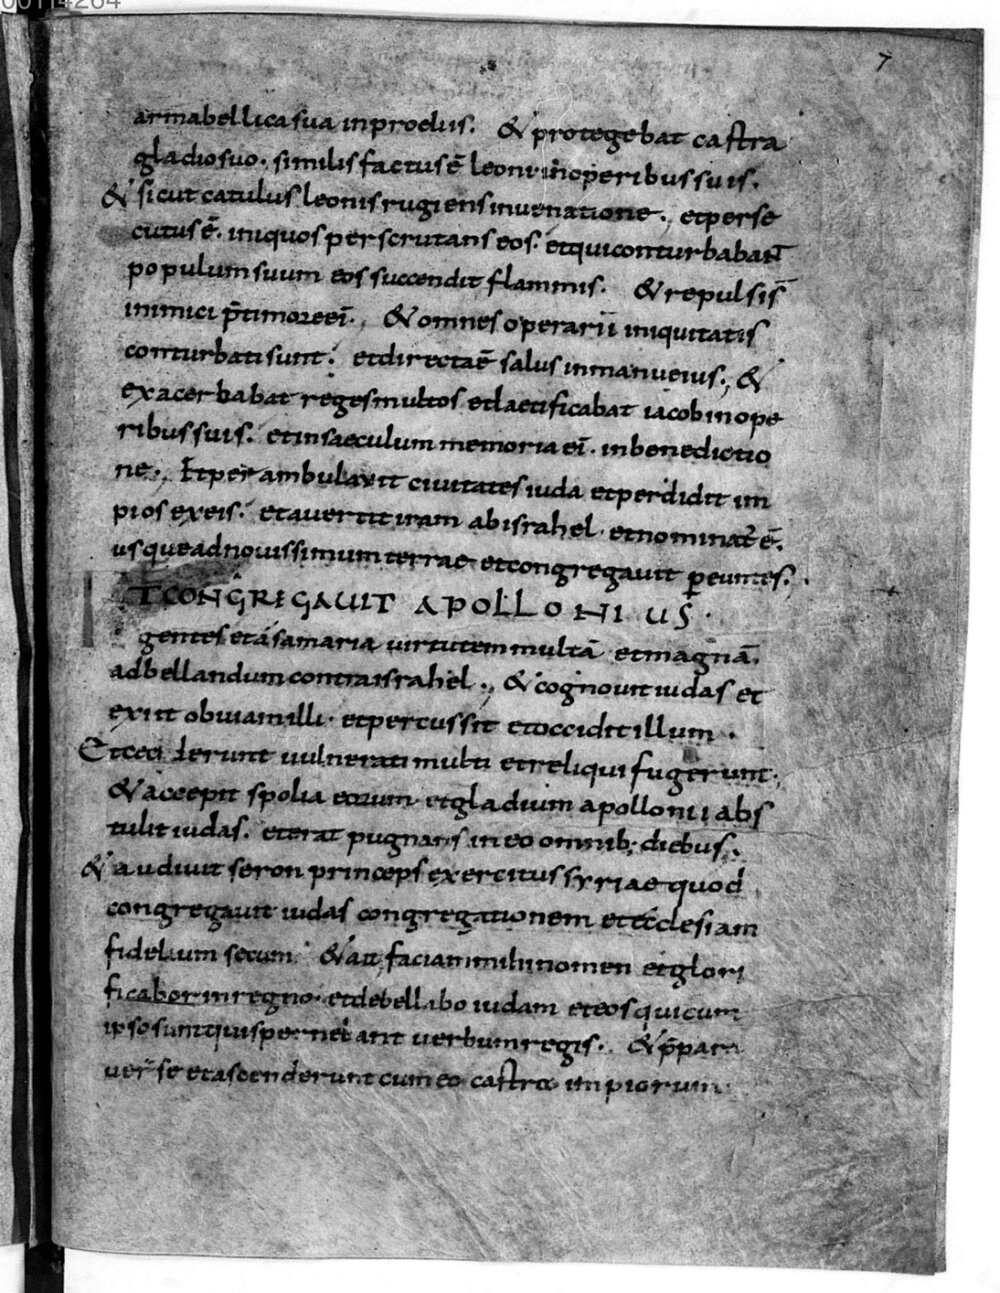 00114264
7
armabellica sua inproeliis. & protegebat castra
gladiosuo. similis factus ē leoni inoperibus suis.
& sicut catulus leonis rugiens inuenatione. et perse
cutus ē. iniquos perscrutans eos. et qui conturbabant
populum suum eos succendit flammis. & repulsi s̄
inimici p̄ timore eī. & omnes operarii iniquitatis
conturbati sunt. et directa ē salus inmanu eius. &
exacerbabat reges multos et laetificabat iacob inope
ribus suis. et insaeculum memoria eī. inbenedictio
ne. Et perambulauit ciuitates iuda et perdidit im
pios exeis. et auertit iram abisrahel. et nominat' ē.
usque adnouissimum terrae et congregauit pereuntes.
ET CONGREGAUIT APOLLONIUS.
gentes et a samaria uirtutem multā et magnā.
adbellandum contra israhel. & cognouit iudas et
exiit obuiam illi. et percussit et occidit illum.
Et ceciderunt uulnerati multi et reliqui fugerunt.
& accepit spolia eorum et gladium apollonii abs
tulit iudas. et erat pugnans in eo omnib; diebus.
& audiuit seron princeps exercitus syriae quod
congregauit iudas congregationem et ecclesiam
fidelium secum. & ait faciam mihi nomen et glori
ficabor inregno. et debellabo iudam et eos qui cum
ipso sunt qui spernebant uerbum regis. & p̄para
uer̄ se et ascenderunt cum eo castra impiorum